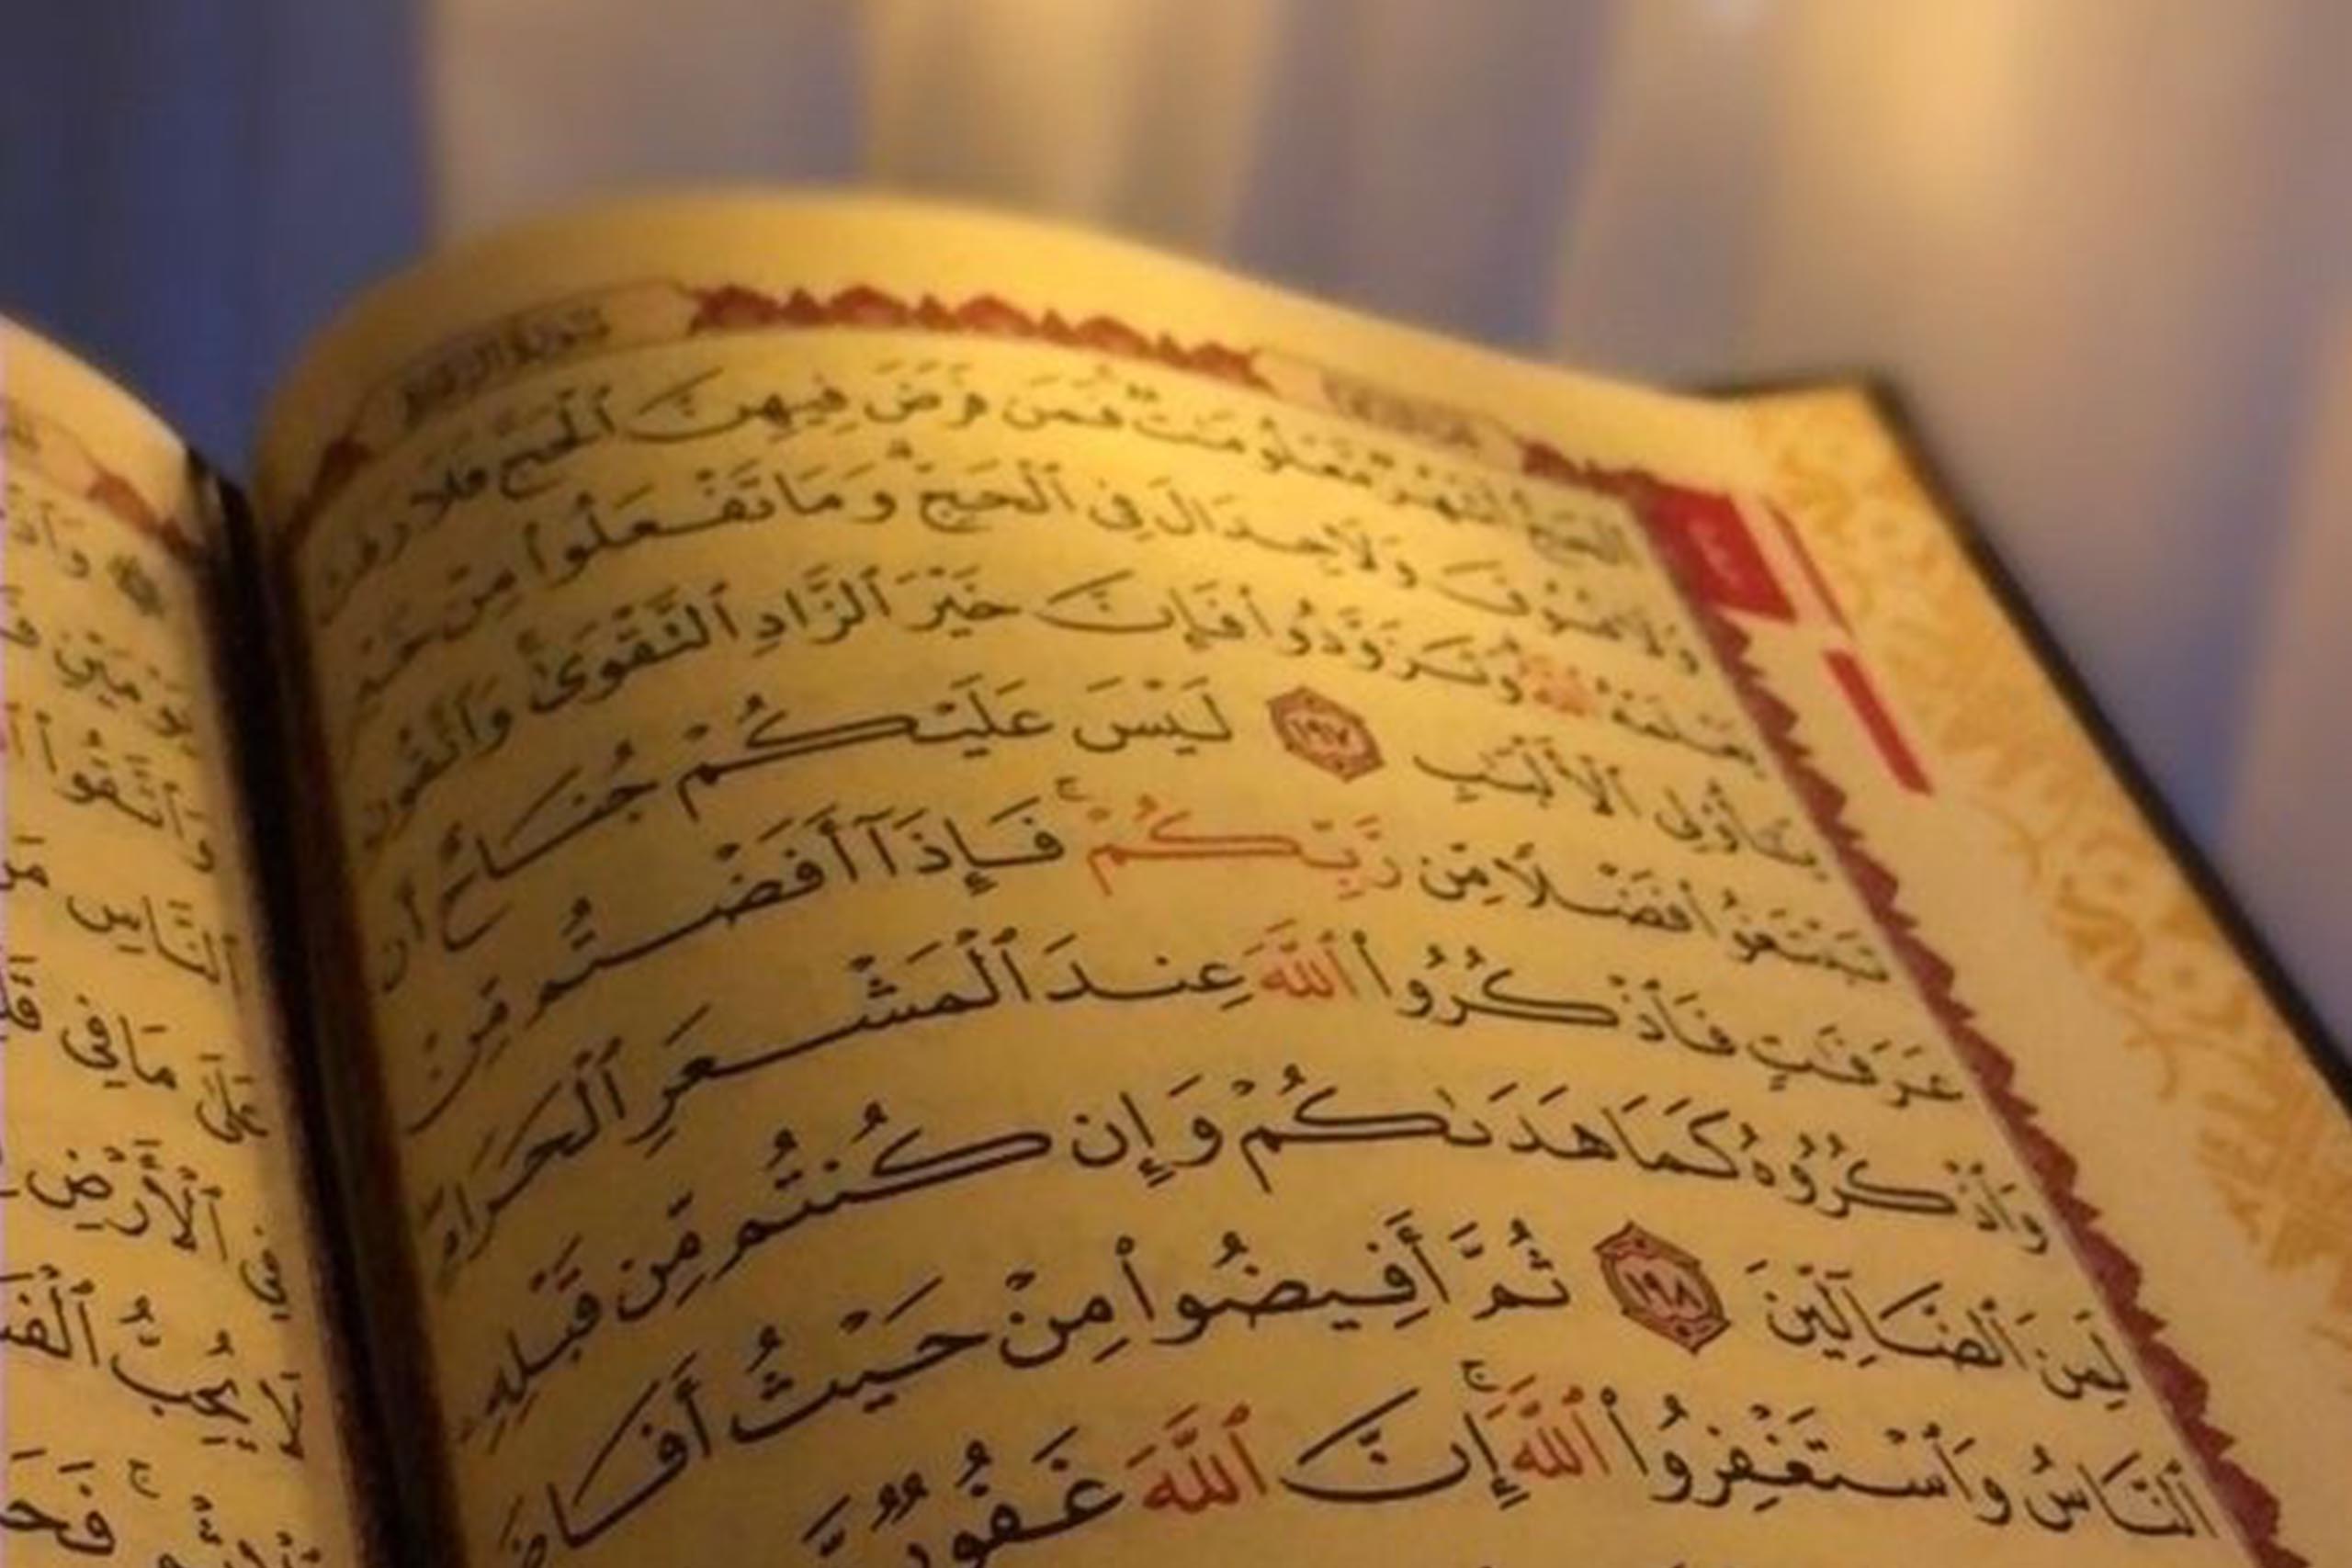 الْحَجُّ أَشْهُرٌ مَّعْلُومَٰتٌ فَمَن فَرَضَ فِيهِنَّ الْحَجَّ فَلَا رَفَثَ
وَلَا فُسُوقَ وَلَا جِدَالَ فِى ٱلْحَجِّ وَمَا تَفْعَلُوا۟ مِنْ خَيْرٍ
يَعْلَمْهُ ٱللَّهُ وَتَزَوَّدُوا۟ فَإِنَّ خَيْرَ ٱلزَّادِ ٱلتَّقْوَىٰ وَٱتَّقُونِ
يَٰٓأُو۟لِى ٱلْأَلْبَٰبِ ١٩٧ لَيْسَ عَلَيْكُمْ جُنَاحٌ أَن
تَبْتَغُوا۟ فَضْلًا مِّن رَّبِّكُمْ ۚ فَإِذَآ أَفَضْتُم مِّنْ
عَرَفَٰتٍ فَٱذْكُرُوا۟ ٱللَّهَ عِندَ ٱلْمَشْعَرِ ٱلْحَرَامِ
وَٱذْكُرُوهُ كَمَا هَدَىٰكُمْ وَإِن كُنتُم مِّن قَبْلِهِۦ
لَمِنَ ٱلضَّآلِّينَ ١٩٨ ثُمَّ أَفِيضُوا۟ مِنْ حَيْثُ أَفَاضَ
ٱلنَّاسُ وَٱسْتَغْفِرُوا۟ ٱللَّهَ ۚ إِنَّ ٱللَّهَ غَفُورٌ
وَٱتَّقُوا۟
ٱلنَّاسِ
عَلَىٰ مَا فِى
فِى ٱلْأَرْضِ
لَا يُحِبُّ